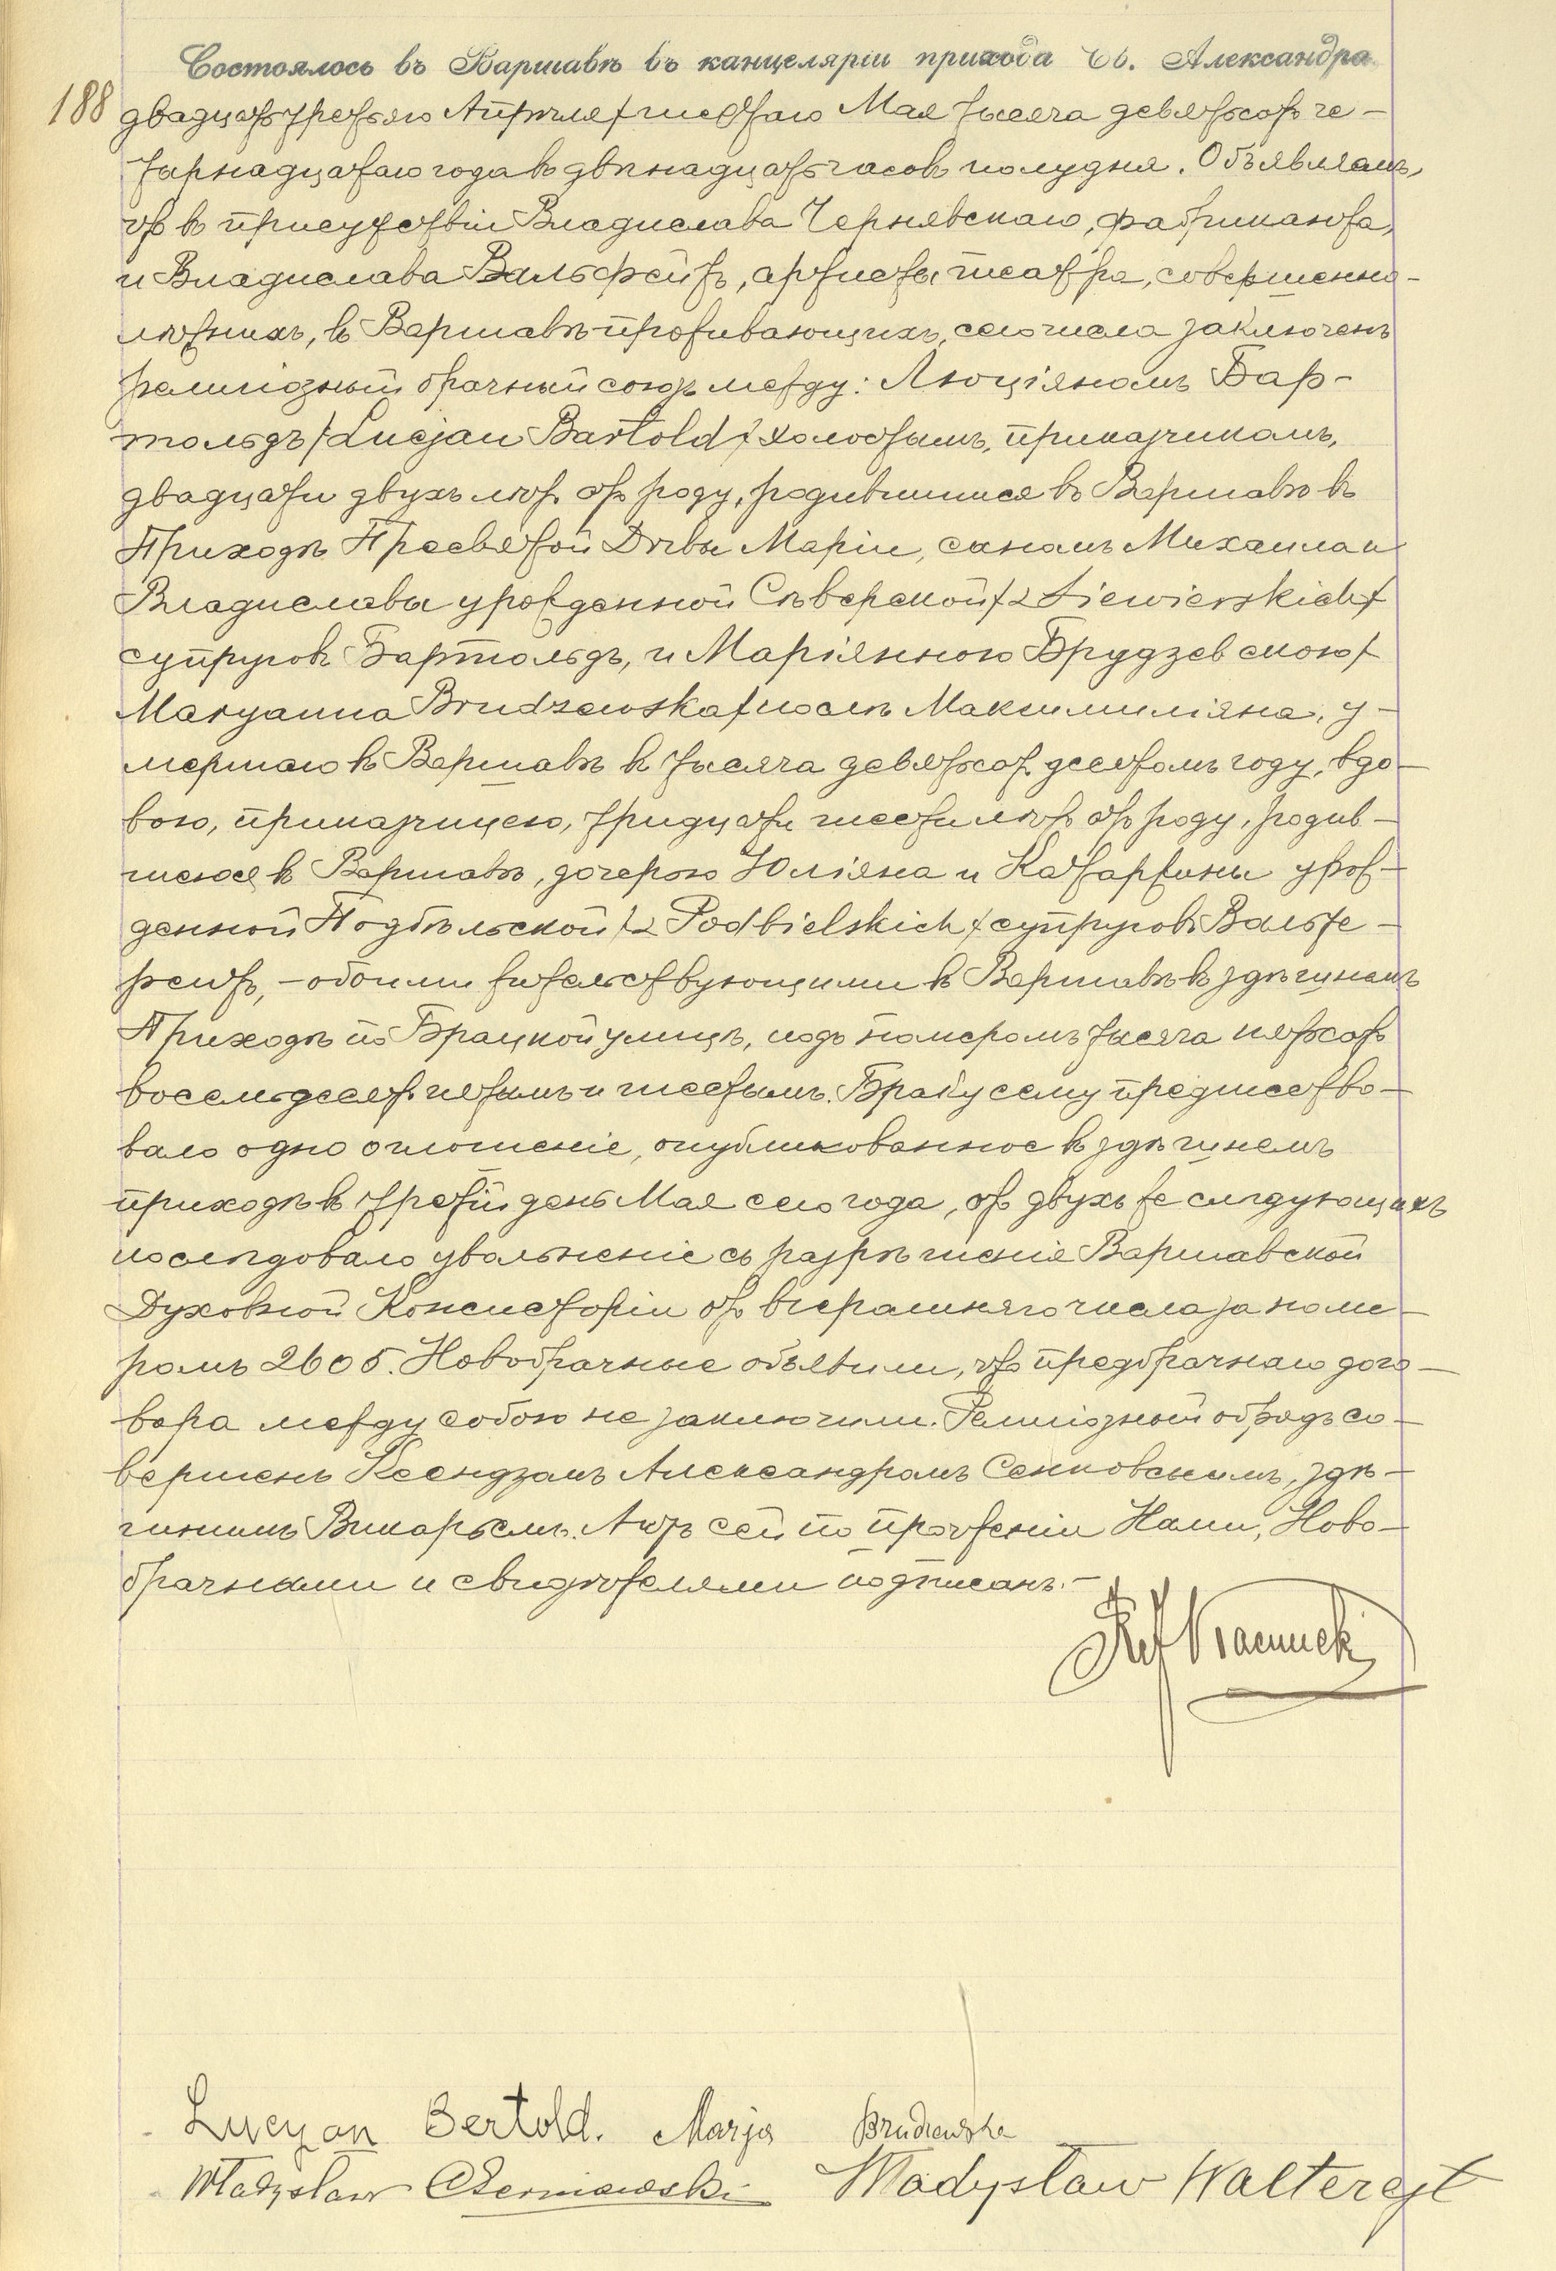 Состоялось въ Варшавѣ въ канцеляріи прихода Св. Александра
188 двадцать третьяго Апрѣля / шестаго Мая тысяча девятьсотъ че-
тырнадцатаго года въ двѣнадцать часовъ полудня. Объявляемъ,
что въ присутствіи Владислава Чернявскаго, фабриканта,
и Владислава Вальфейтъ, артиста театра, совершенно-
лѣтнихъ, въ Варшавѣ проживающихъ, сего числа заключенъ
религіозный брачный союзъ между: Люціяномъ Бар-
тольдъ / Lucjan Bartold / холостымъ, приказчикомъ,
двадцати двухъ лѣтъ отъ роду, родившимся въ Варшавѣ въ
Приходѣ Пресвятой Дѣвы Маріи, сыномъ Михаила и
Владиславы урожденной Сѣверской / z Siewierskich /
супруговъ Бартольдъ, и Маріянною Брудзевскою /
Maryanna Brudzewska / послѣ Максимиліяна, у-
мершаго въ Варшавѣ въ тысяча девятьсотъ десятомъ году, вдо-
вою, приказчицею, тридцати шести лѣтъ отъ роду, родив-
шеюся въ Варшавѣ, дочерью Юліяна и Катаржины урож-
денной Подбѣльской / z Podbielskich / супруговъ Вальте-
рейтъ, - обоими жительствующими въ Варшавѣ въ здѣшнемъ
Приходѣ по Брацкой улицѣ, подъ номеромъ тысяча пятьсотъ
восемьдесятъ пятымъ и шестымъ. Браку сему предшество-
вало одно оглошеніе, опубликованное въ здѣшнемъ
приходѣ въ третій день Мая сего года, отъ двухъ же слѣдующихъ
послѣдовало увольненіе съ разрѣшенія Варшавской
Духовной Консисторіи отъ вчерашняго числа за номе-
ромъ 2605. Новобрачные объявили, что предбрачнаго дого-
вора между собою не заключили. Религіозный обрядъ со-
вершенъ Ксендзомъ Александромъ Сенковскимъ, здѣ-
шнимъ Викарьемъ. Актъ сей по прочтеніи Нами, Ново-
брачными и свидѣтелями подписанъ. -
Lucyan Bertold. Marja Brudzewska
Władysław Czerniawski Władysław Walterejt